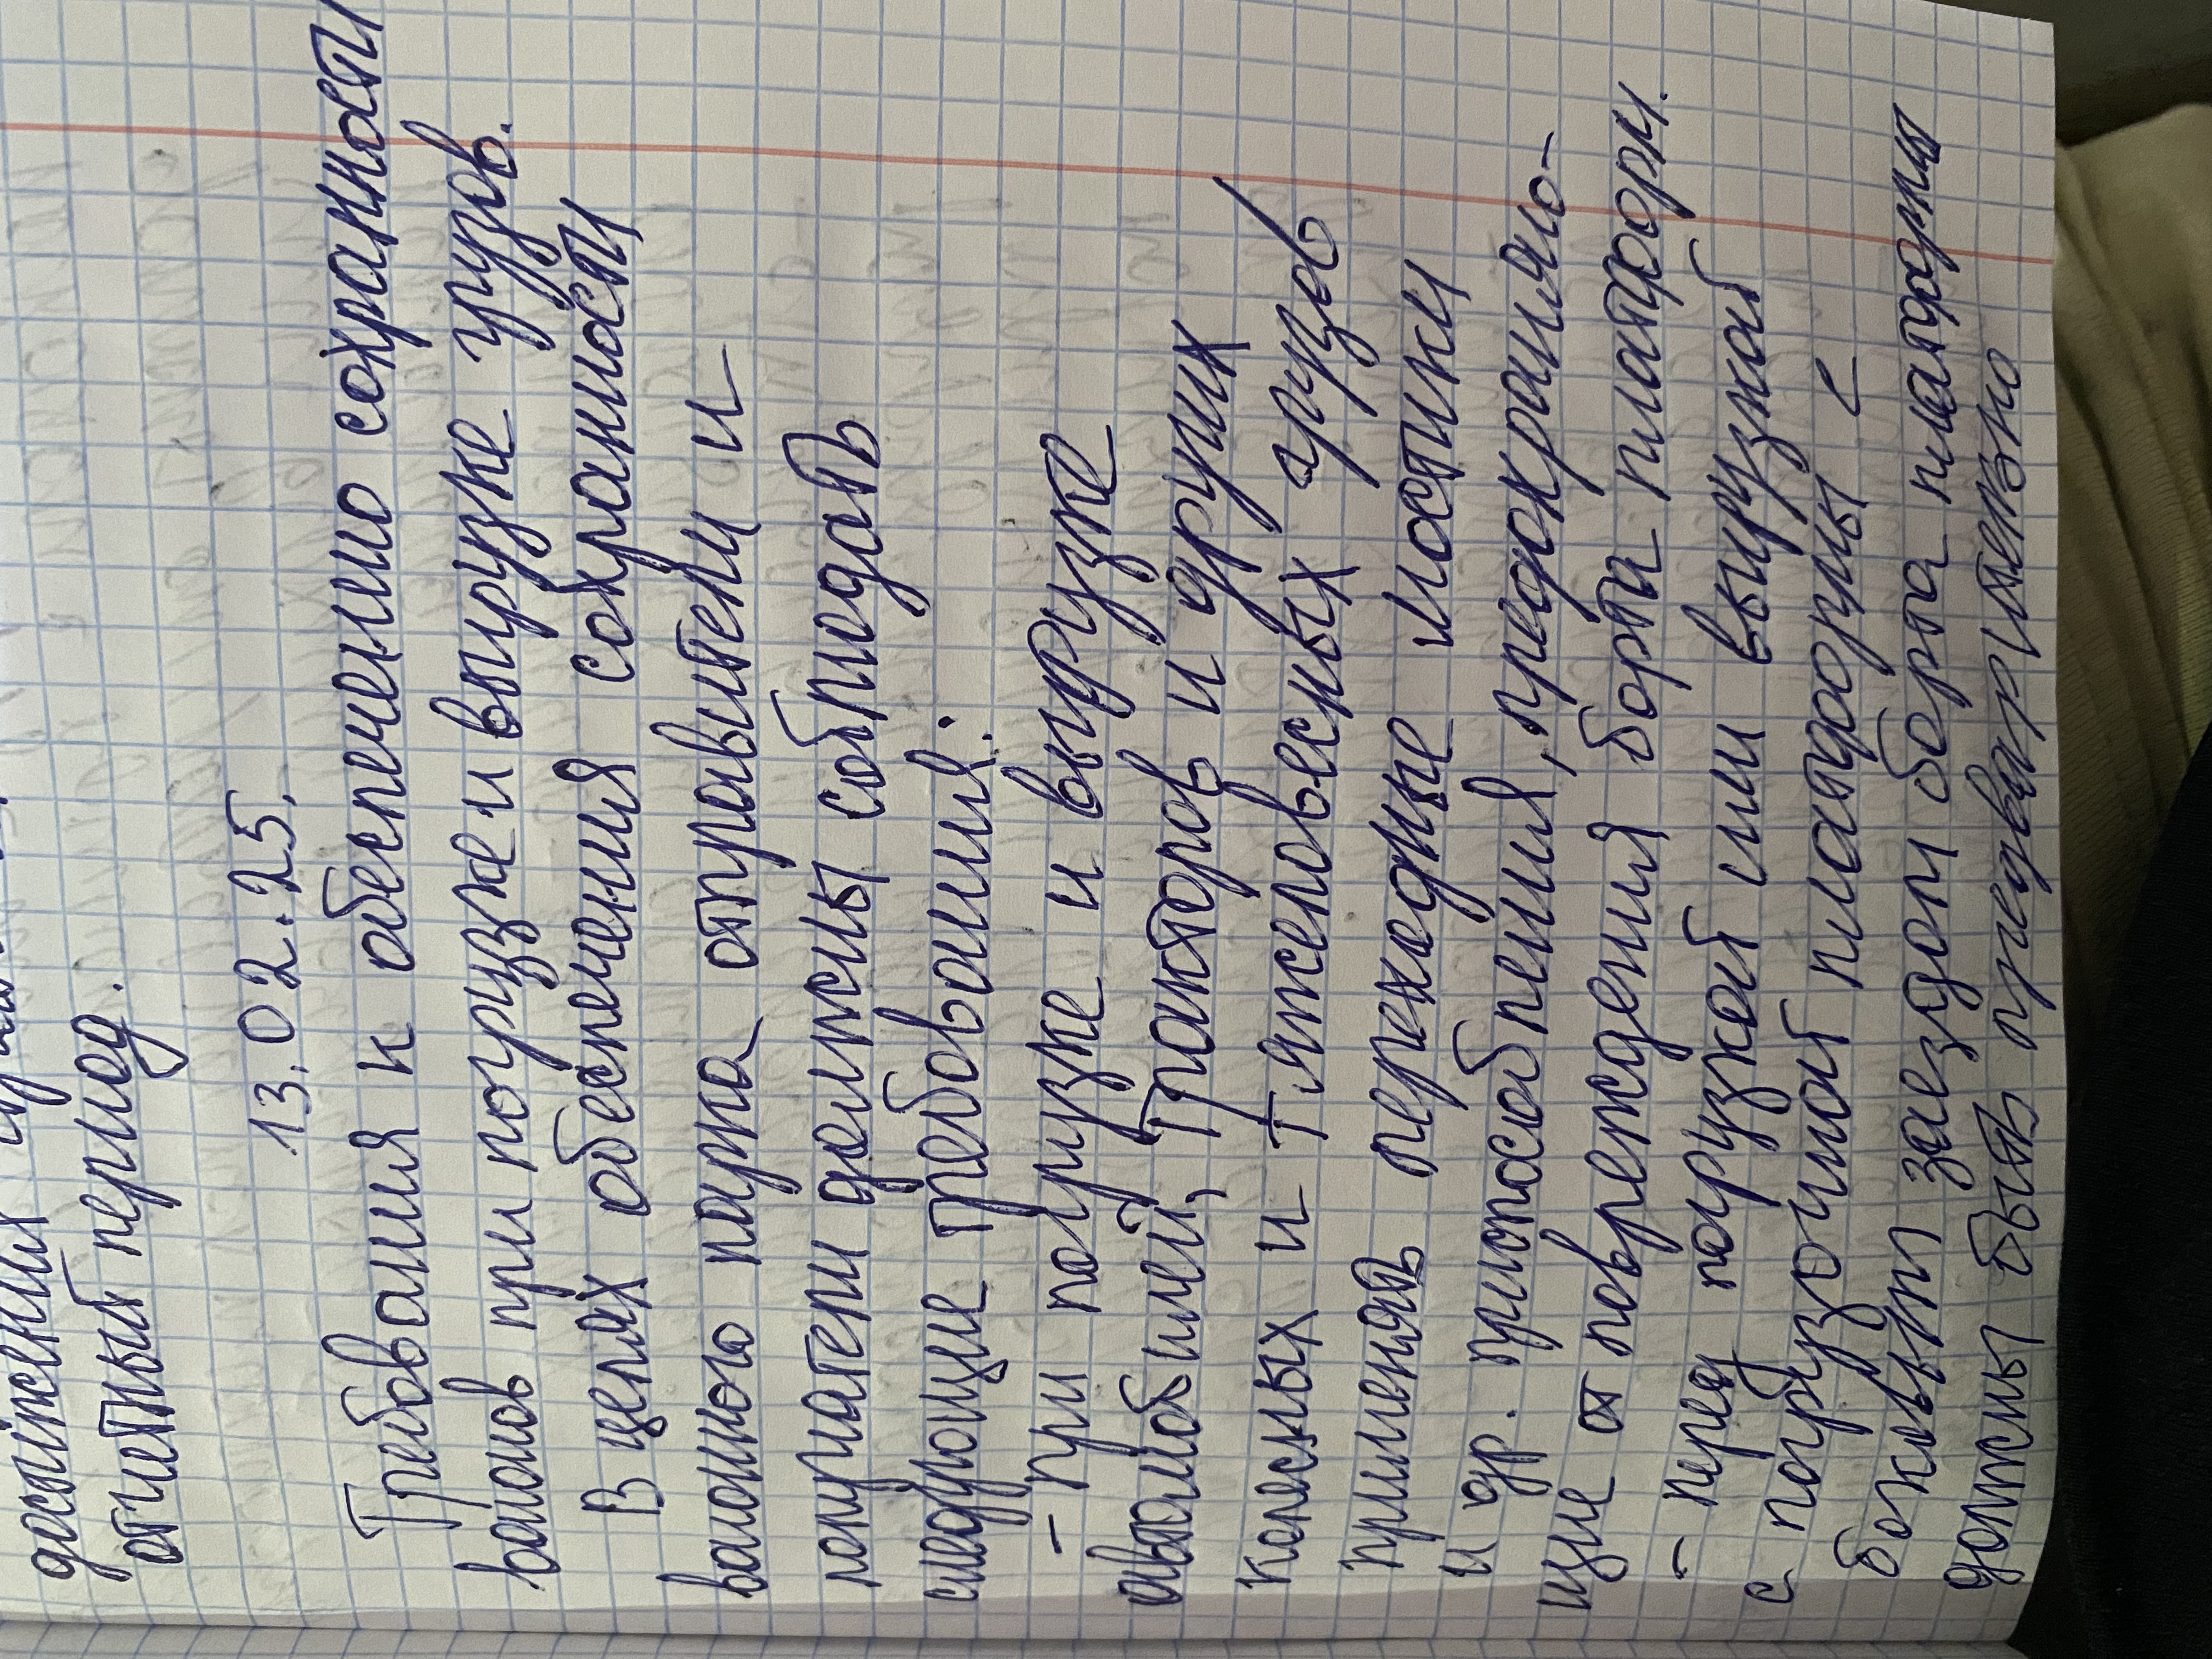 достижения
отчетный период.
13.02.25.
Требования к обеспечению сохранности
вагонов при погрузке и выгрузке грузов.
В целях обеспечения сохраности
вагоного парка отправители и
получатели должны соблюдать
следующие требования:
- при погрузке и выгрузке
автомобилей, тракторов и других
колесных и тяжеловесных грузов
применять переходные мостики
и др. приспособления, предохраняю-
щие от повреждения борта платформ.
- перед погрузкой или выгрузкой
с погрузочной платформы с
боковым заездом борта платформы
должны быть предварительно